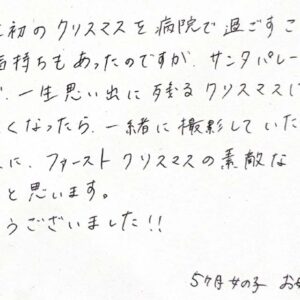 初のクリスマスを病院で過ごすこ
持ちもあったのですが、サンタパレー
、一生思い出に残るクリスマスに
くなったら、一緒に撮影していた
に、ファーストクリスマスの素敵な
と思います。
うございました!!
5ヶ月 女の子 お